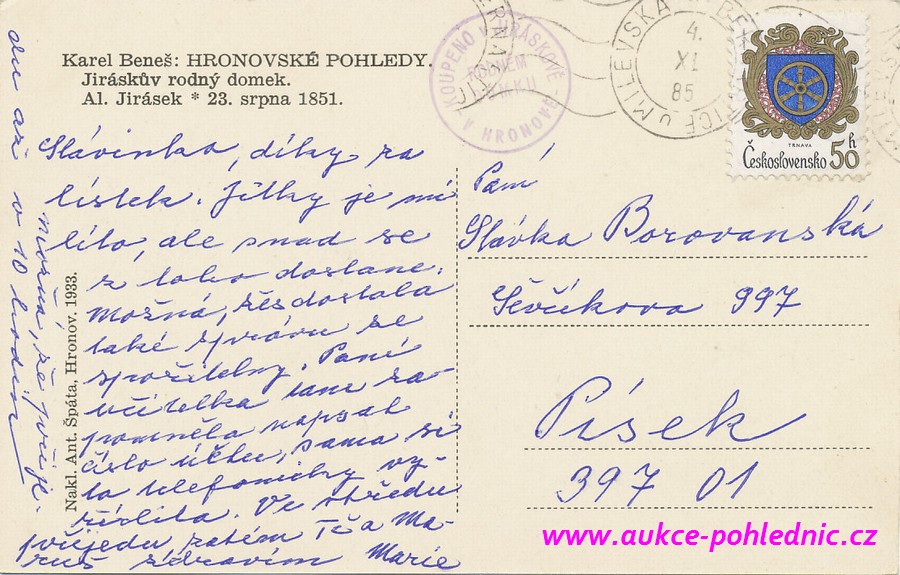 Karel Beneš: HRONOVSKÉ POHLEDY.
Jiráskův rodný domek.
Al. Jirásek * 23. srpna 1851.
Slávinko, díky za
lístek. Jitky je mi
líto, ale snad se
z toho dostane.
Možná, žes dostala
také zprávu ze
spořitelny. Paní
učitelka tam za-
pomněla napsat
číslo účtu, sama si
to telefonicky vy-
řídila. Ve středu
přijedu zatím Tě a Ma-
zdravím Marie
možná, že přije-
du až v 10 hodin
Nakl. Ant. Špáta, Hronov. 1933.
KOUPENO V JIRÁSKOVĚ
RODNÉM
DOMKU
V HRONOVĚ
MILEVSKA
4.
XI.
85
TRNAVA
Československo 50 h
Paní
Slávka Borovanská
Ševčíkova 397
Písek
397 01
www.aukce-pohlednic.cz